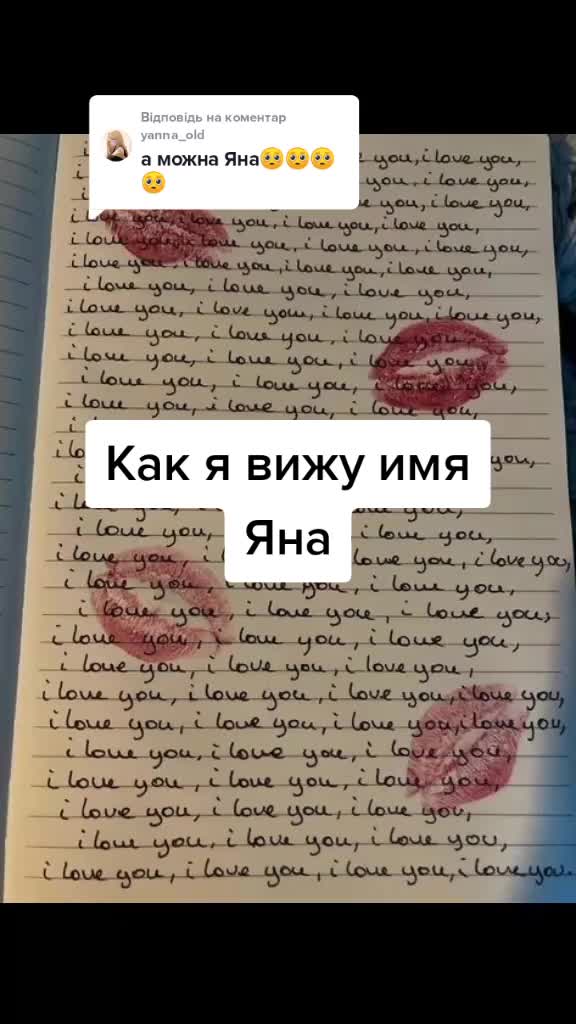 Відповідь на коментар
yanna_old
а можна Яна🥺🥺🥺
🥺
you, i love you,
you, i love you,
you, i love you,
i love you, i love you, i love you, i love you,
i love you, i love you, i love you, i love you,
i love you, i love you, i love you, i love you,
i love you, i love you, i love you,
i love you, i love you, i love you, i love you,
i love you, i love you, i love you,
i love you, i love you, i love you,
i love you, i love you, i love you,
i love you, i love you, i love you,
you,
Как я вижу имя
Яна
i love you, i love you,
i love you, love you, i love you,
i love you, i love you, i love you,
i love you, i love you, i love you,
i love you, i love you, i love you,
i love you, i love you, i love you,
i love you, i love you, i love you, i love you,
i love you, i love you, i love you, i love you,
i love you, i love you, i love you,
i love you, i love you, i love you,
i love you, i love you, i love you,
i love you, i love you, i love you,
i love you, i love you, i love you, i love you.